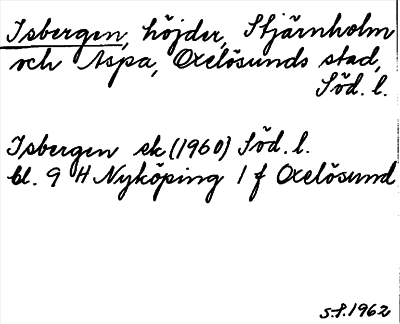 Isbergen, höjder, Stjärnholm
och Aspa, Oxelösunds stad,
Söd. l.
Isbergen ek (1960) Söd. l.
bl. 9 H Nyköping 1 f Oxelösund
S.P. 1962